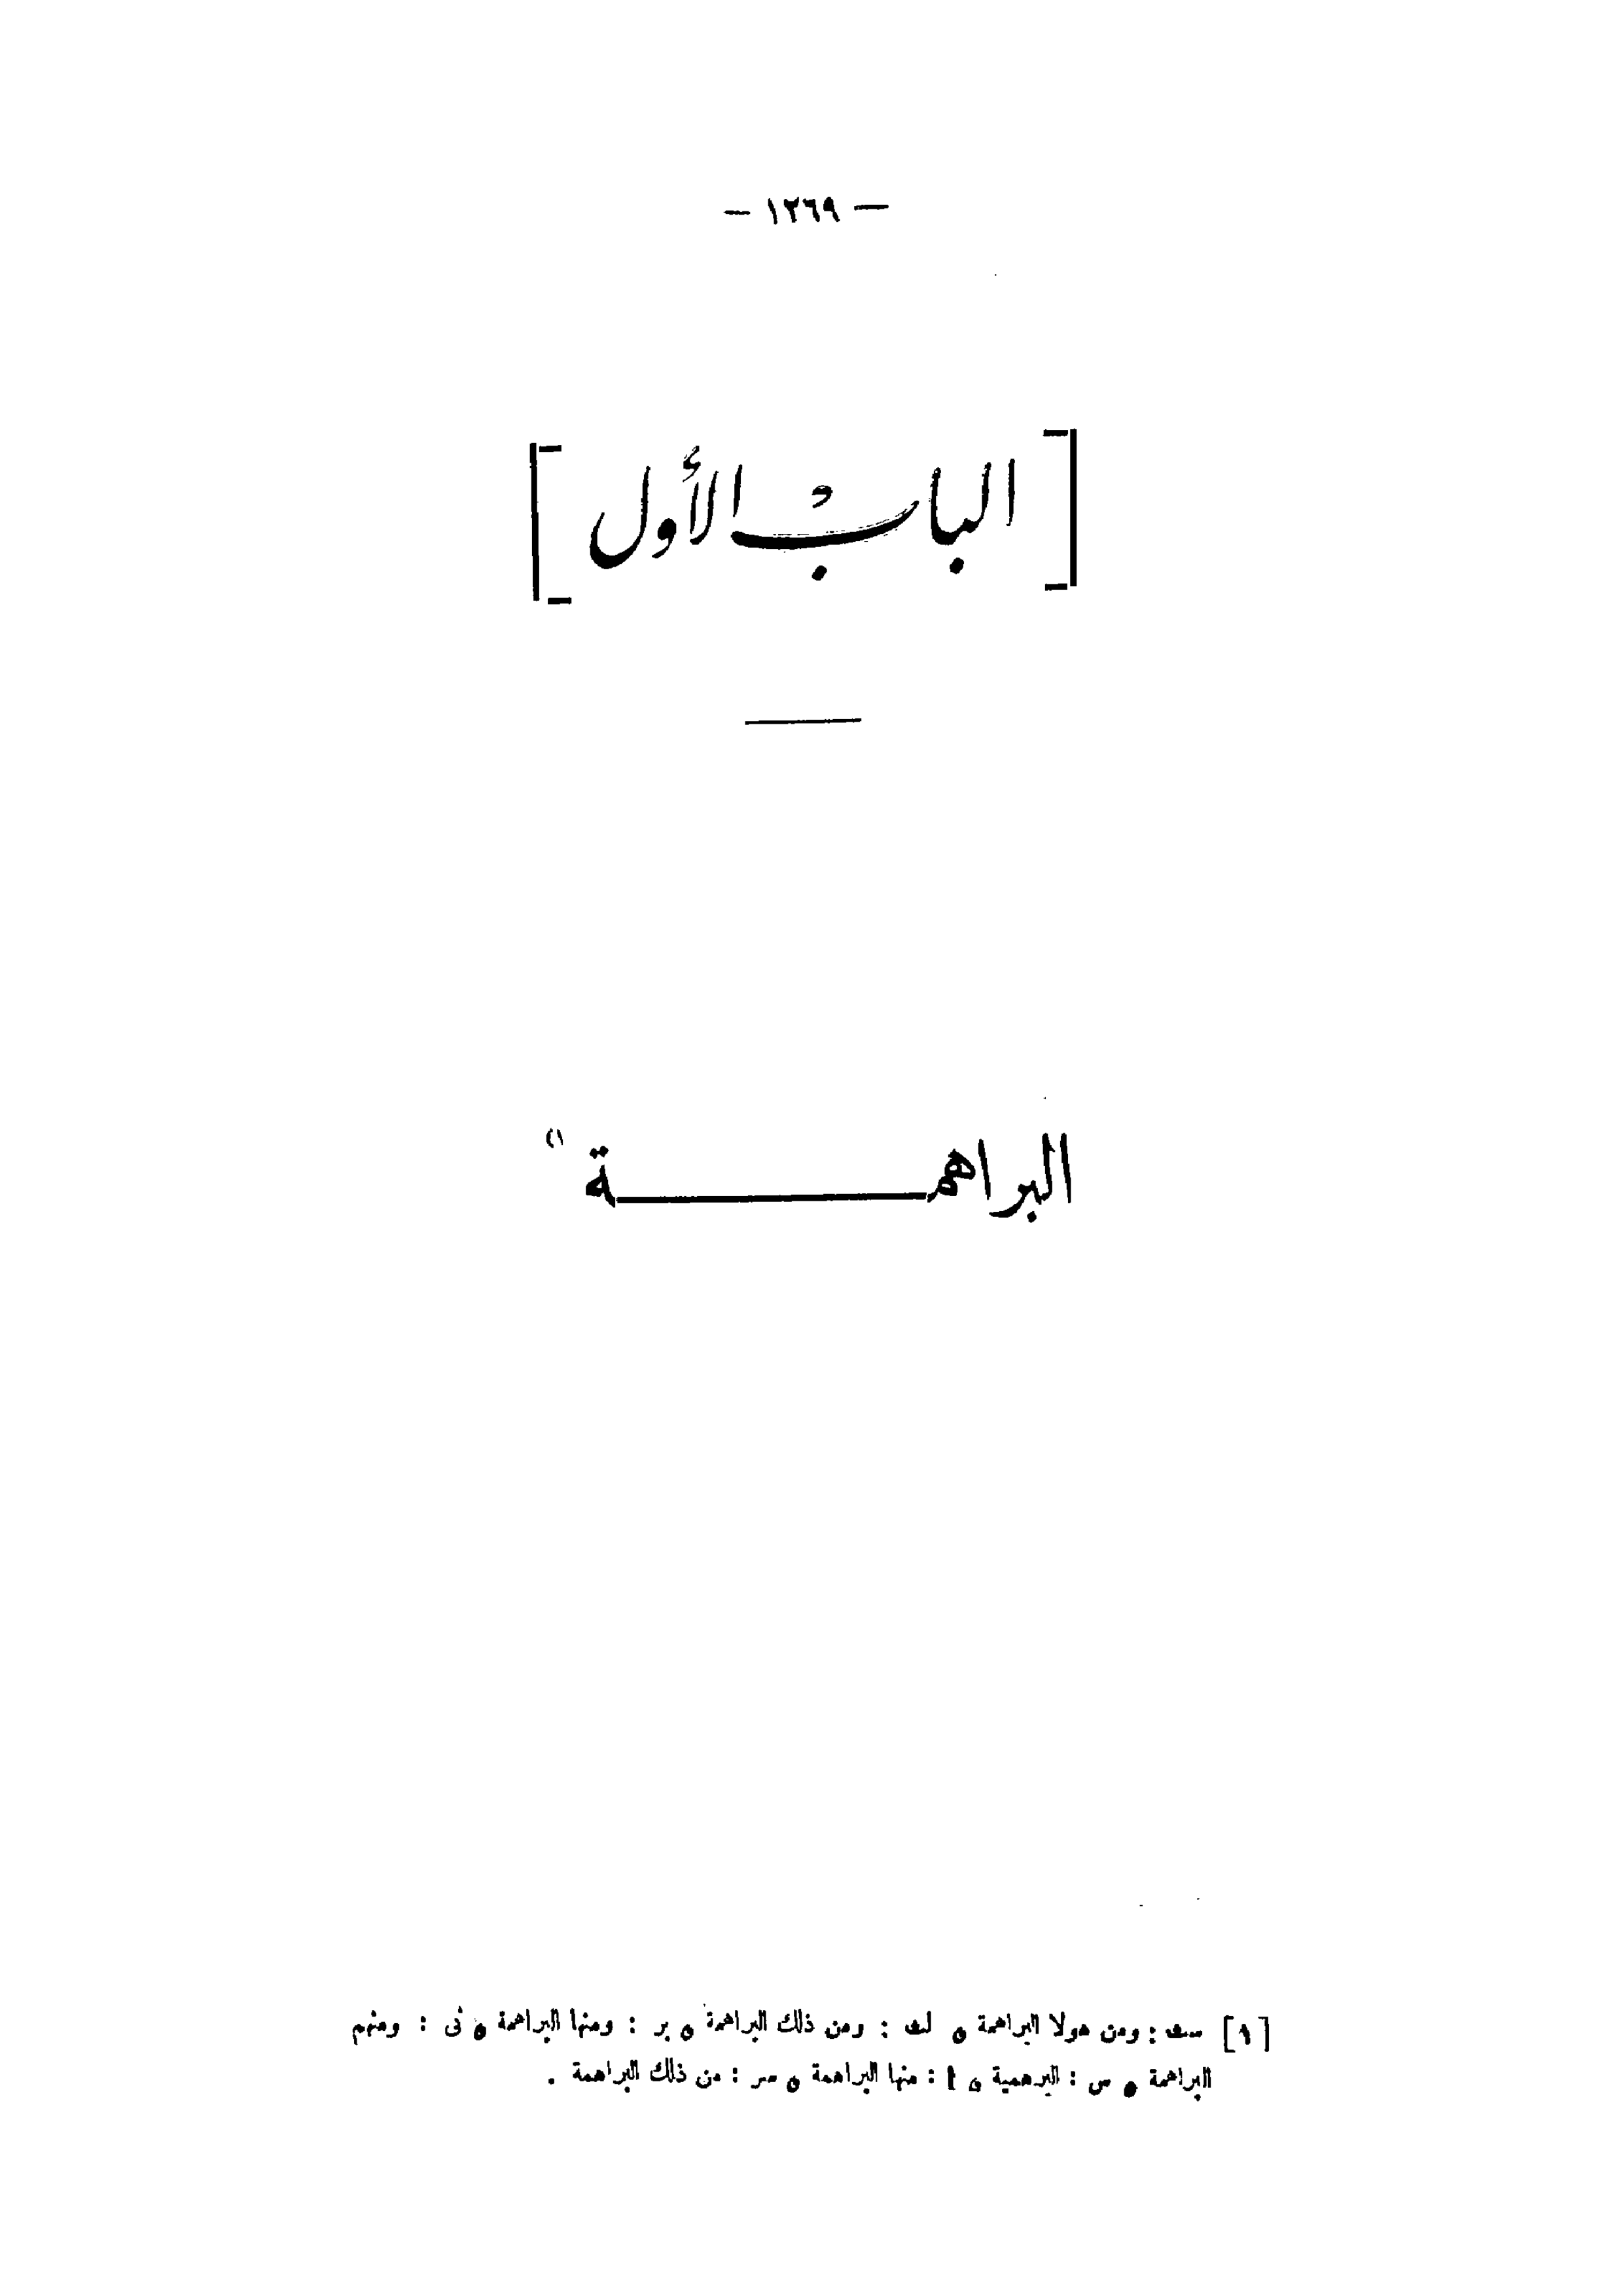 — ١٢٦٩ —
[ الباب الأول ]
البراهمـــــــــة (١
[١] ست : ومن هولا البراهمة ه لث : ومن ذلك البراهمة ه بر : ومنها البراهمة ه نى : ومنهم
البراهمة ه س : البرهمية ه ا : منها البراهمة ه سر : من ذلك البراهمة .